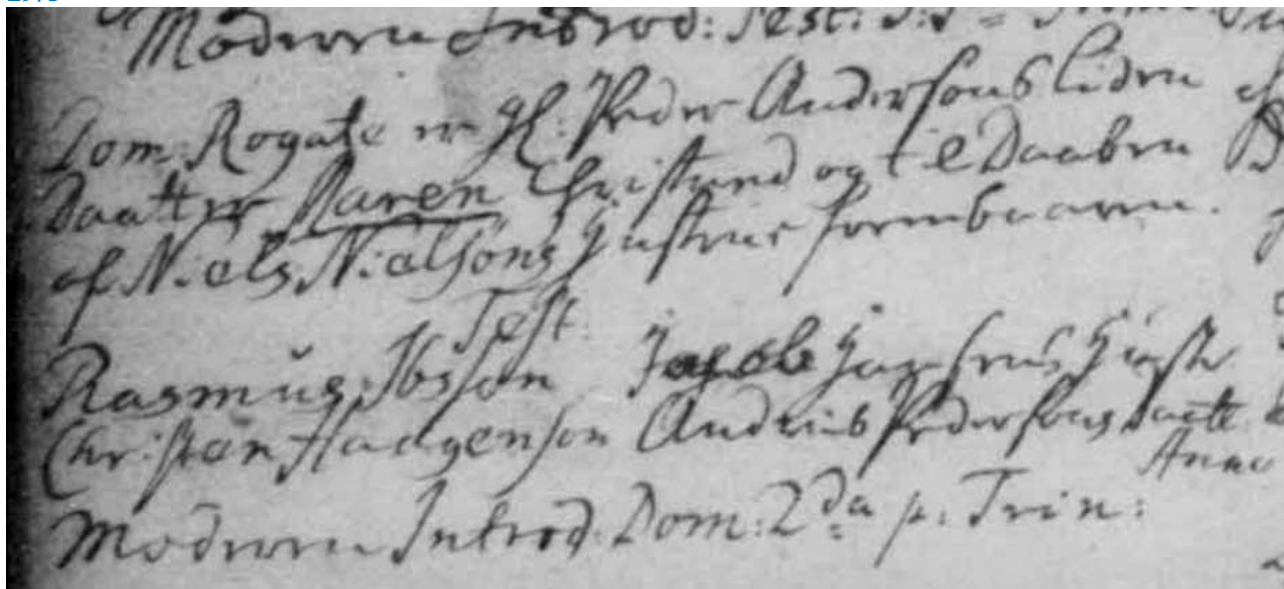 Moderen Introd: Fest:
Dom: Rogate er Hl: Peder Andersøns liden
Daatter Karen Christned og til Daaben
af Niels Nielsøns Hustrue frembaaren.
Test:
Rasmus Ibsøn Jacob Hustr
Christen Haagensøn Anders Pedersøns daatt
Anne
Moderen Introd: Dom: 2da p. Trin: